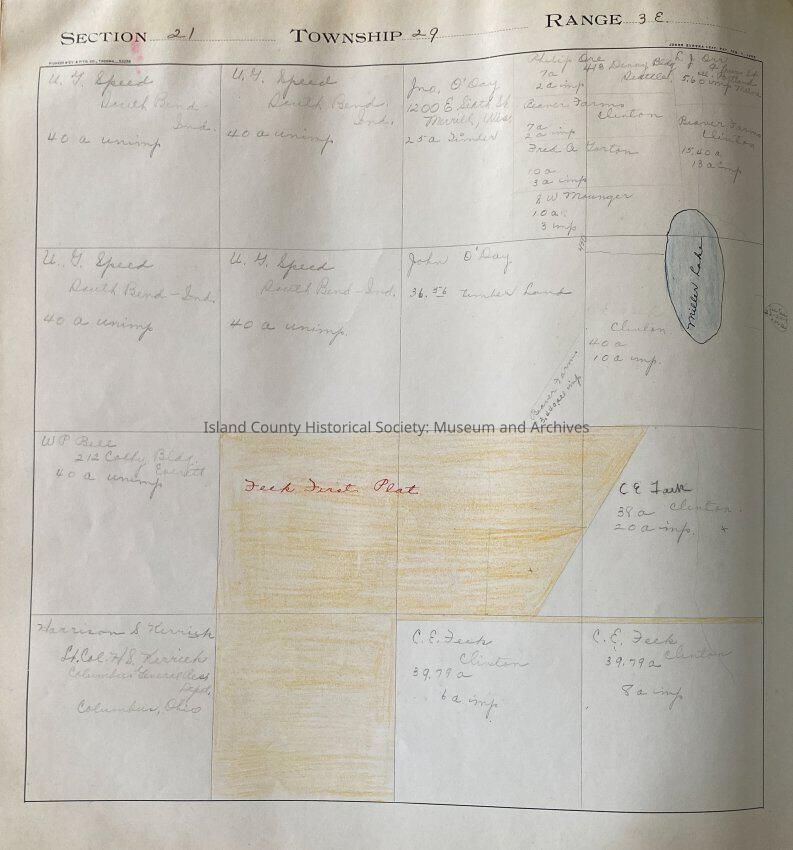 SECTION 21 TOWNSHIP 29 RANGE 3 E.
U. G. Speed
South Bend-
Ind.
40 a unimp
U. G. Speed
South Bend.
Ind.
40 a unimp
Jno. O'Day
1200 E. Sixth St.
Merrill, Wisc
25 a Timber
Philip Ore
7 a
2 a imp
418 Denny Bldg
Seattle
L. J. Orr
Portland
5.60 imp
Beaver Farms
Clinton
7 a
2 a imp
Beaver Farms
Clinton
15.40 a
13 a imp
Fred A Garton
10 a
3 a imp
& W Mounger
10 a
3 imp
U. G. Speed
South Bend-Ind.
40 a unimp
U. G. Speed
South Bend-Ind.
40 a unimp.
John O'Day
36.56 Timber Land
Miller Lake
Clinton
40 a
10 a imp.
Beaver Farms
Island County Historical Society: Museum and Archives
W P Bell
212 Colby Bldg.
Everett
40 a unimp
Feek First Plat
C E Feek
38 a Clinton.
20 a imp.
Harrison S Kerrick
Lt. Col. H S. Kerrick
Columbus General
Depot,
Columbus, Ohio
C. E. Feek
Clinton
39.79 a
6 a imp
C. E. Feek
Clinton
39.79 a
8 a imp